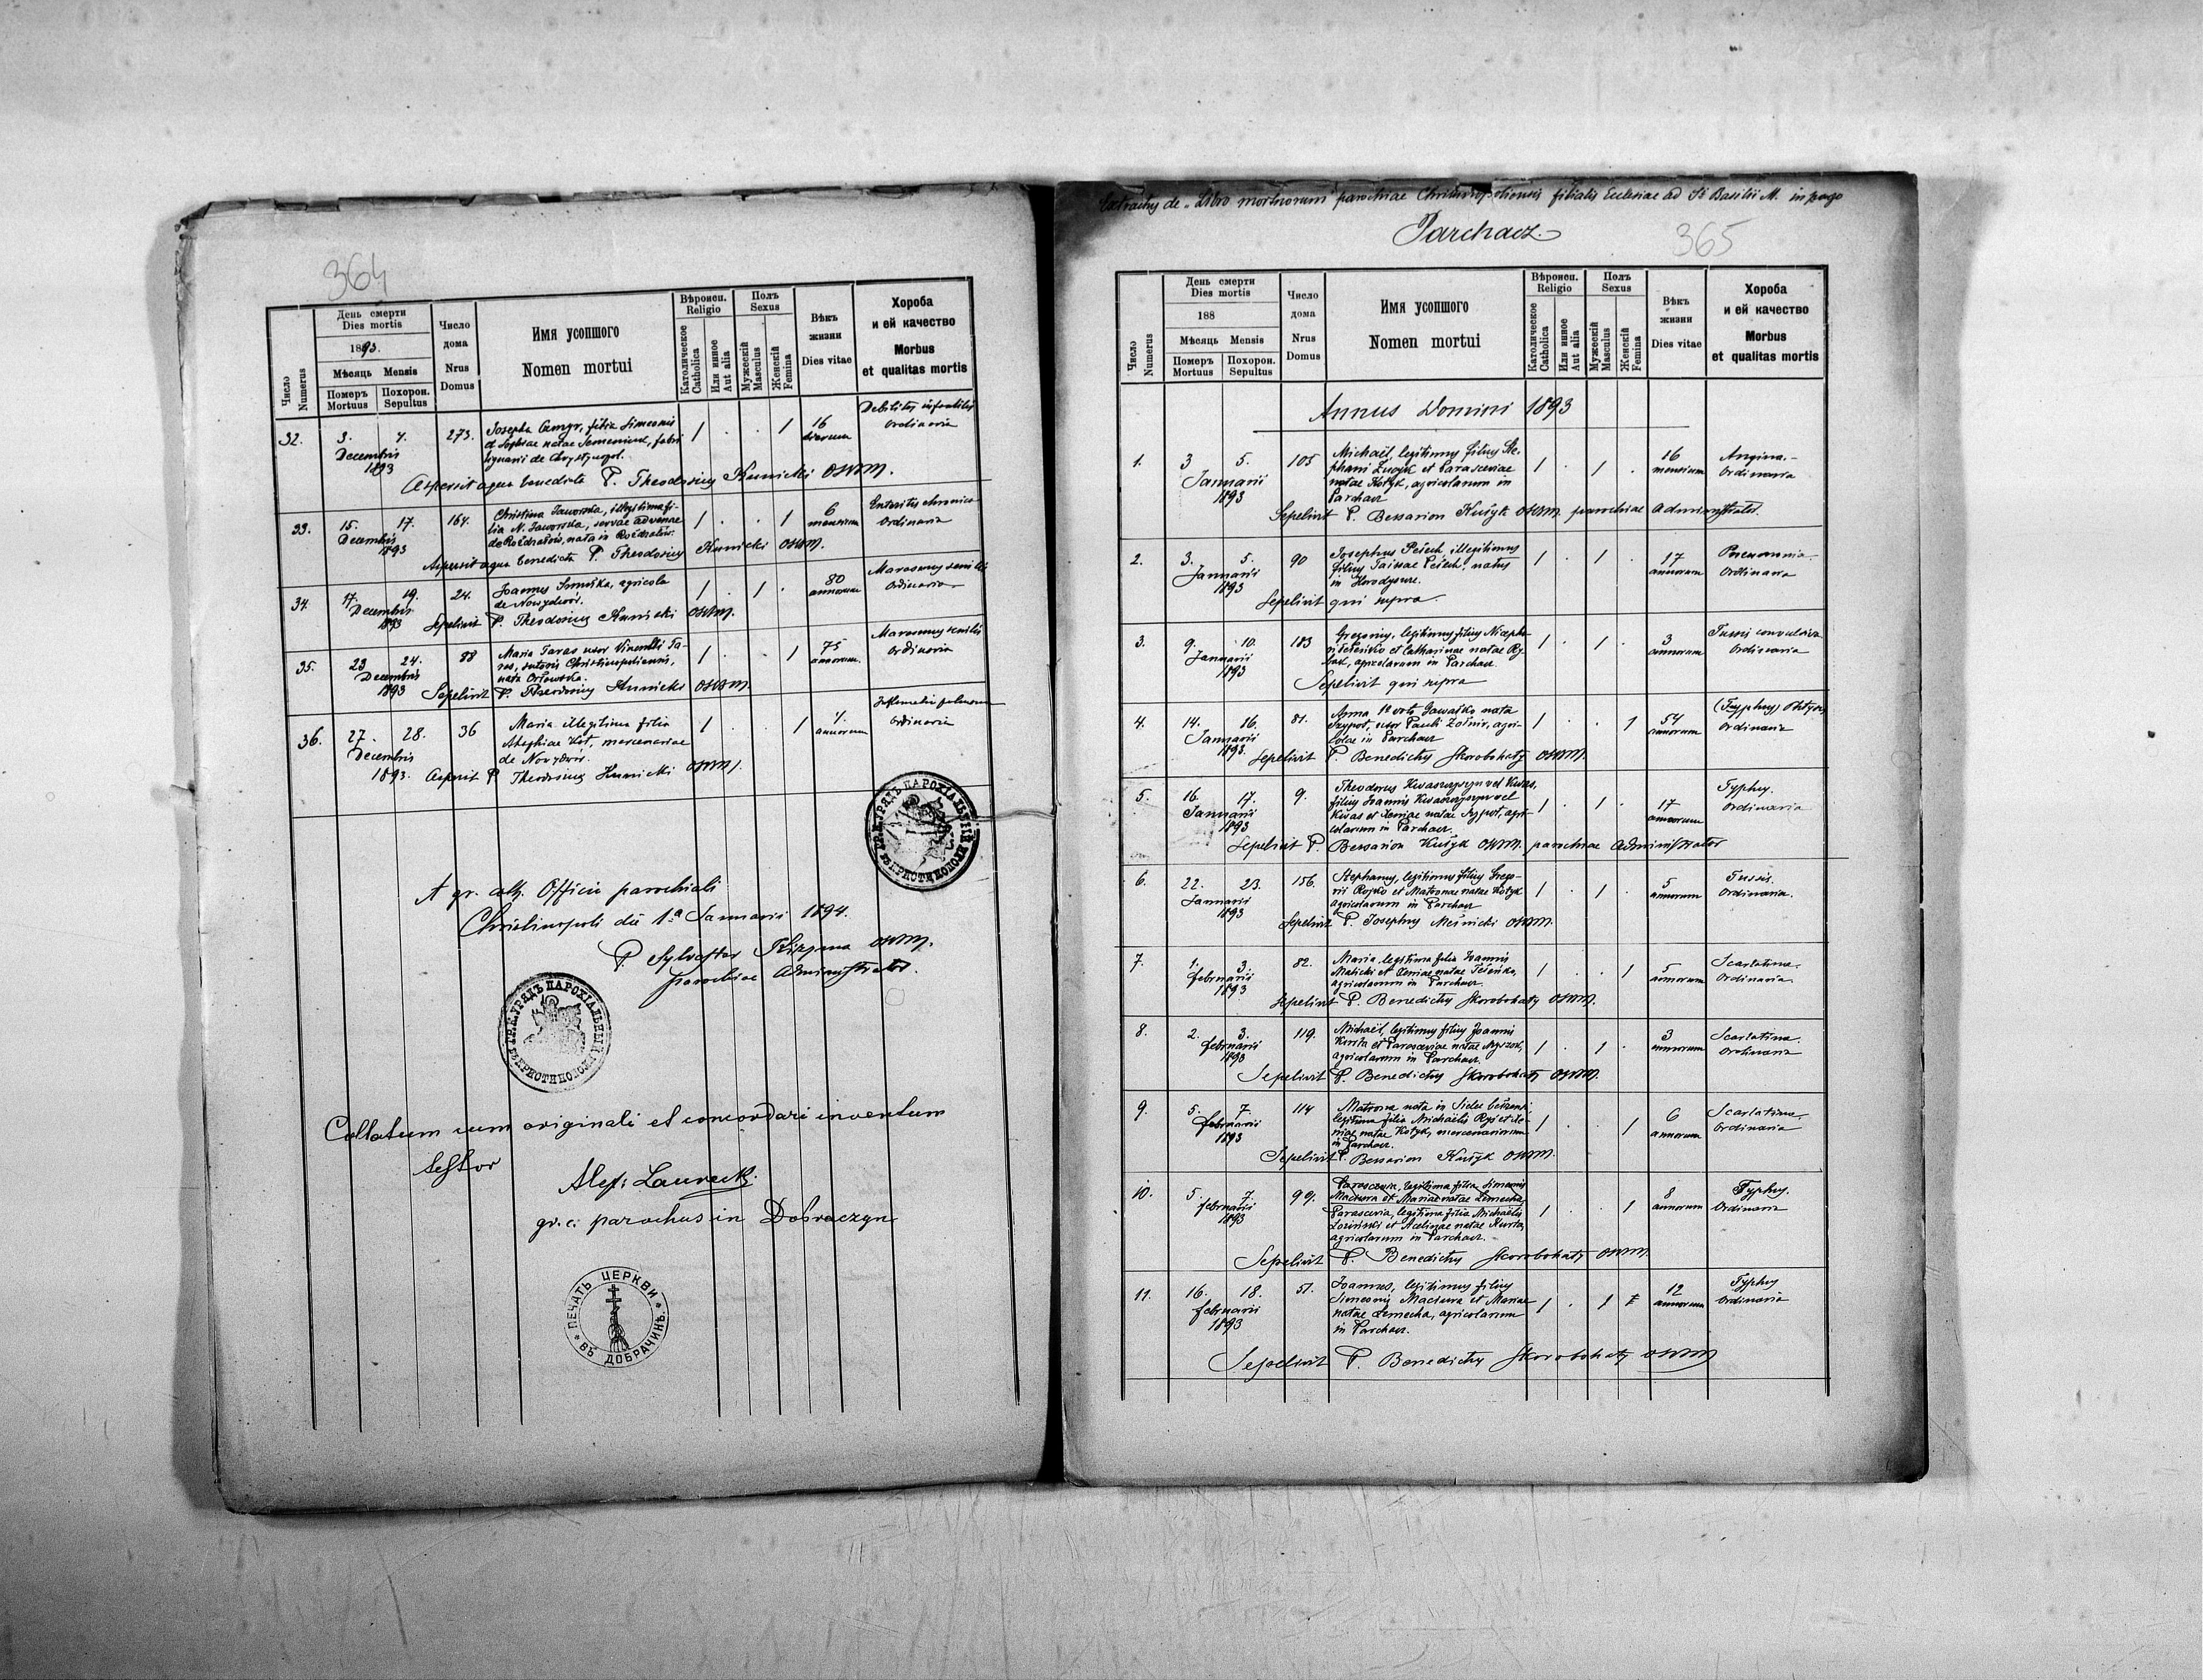 364
Число
Numerus
День смерти
Dies mortis
1893.
Мѣсяць Mensis
Померъ
Mortuus
Похорон.
Sepultus
Число
дома
Nrus
Domus
Имя усопшого
Nomen mortui
Вѣроисп.
Religio
Католическое
Catholica
Или инное
Aut alia
Полъ
Sexus
Мужескій
Masculus
Женскій
Femina
Вѣкъ
жизни
Dies vitae
Хороба
и ей качество
Morbus
et qualitas mortis
32. 3. 4. Decembris 1893 273.
Josepha filia Simeonis
et Sophiae natae Semeniuk, fabri
lignarii de
1 . . 1 16 dierum
Debilitas infantilis
ordinaria
Aspersit aqua benedicta P. Theodosius Kunicki OSBM.
33. 15. 17. Decembris 1893 164.
Christina Jaworska, illegitima fi-
lia N. Jaworska, servae advenae
de Rozdzialów, nata in Rozdzialów.
1 . . 1 6 mensium
Enteritis chronica
Ordinaria
Aspersit aqua benedicta P. Theodosius Kunicki OSBM.
34. 17. 19. Decembris 1893 24.
Joannes agricola
de Novydwór.
1 . 1 . 80 annorum
Marasmus senilis
Ordinaria
Sepelivit P. Theodosius Kunicki OSBM.
35. 23 24. Decembris 1893 88
Maria Taras uxor Vincentii Ta-
ras, sutoris Christinopoliensis,
nata Orłowska.
1 . . 1 75 annorum.
Marasmus senilis
Ordinaria
Sepelivit P. Theodosius Kunicki OSBM.
36. 27. 28. Decembris 1893. 36
Maria illegitima filia
Kot, mercenariae
de Novydwór.
1 . . 1 annorum
Ordinaria
Aspersit P. Theodosius Kunicki OSBM.
A gr. cath. Officio parochiali
Christinopoli die 1.a Januarii 1894.
P. Sylvester OSBM.
parochiae Administrator.
Collatum cum originali et concordari inventum
testor
Alex: Laurecki
gr. c. parochus in Dobraczyn
ПЕЧАТЬ ЦЕРКВИ
ВЪ ДОБРАЧИНѢ
Extractus de „Libro mortuorum" parochiae Christinopoliensis filialis Ecclesiae ad St Basilii M. in pago
Parchacz.
365
Число
Numerus
День смерти
Dies mortis
188
Мѣсяць Mensis
Померъ
Mortuus
Похорон.
Sepultus
Число
дома
Nrus
Domus
Имя усопшого
Nomen mortui
Вѣроисп.
Religio
Католическое
Catholica
Или инное
Aut alia
Полъ
Sexus
Мужескій
Masculus
Женскій
Femina
Вѣкъ
жизни
Dies vitae
Хороба
и ей качество
Morbus
et qualitas mortis
Annus Domini 1893
1. 3 5. Januarii 1893 105
Michaël, legitimus filius Ste-
phani et Parasceviae
natae Kotyk, agricolarum in
Parchacz
1 . 1 . 16 mensium
Angina.
Ordinaria
Sepelivit P. Bessarion Kuśyk OSBM. parochiae Administrator.
2. 3. 5. Januarii 1893 90
Josephus Pełech, illegitimus
filius Taissae Pełech, natus
in Horodyszcze.
1 . 1 . 17 annorum
Pneumonia.
Ordinaria
Sepelivit qui supra.
3. 9. 10. Januarii 1893 183
Gregorius, legitimus filius Nicepho-
ri et Catharinae natae Ry-
agricolarum in Parchacz
1 . 1 . 3 annorum
Tussis convulsiva
Ordinaria
Sepelivit qui supra
4. 14. 16. Januarii 1893. 81.
Anna 1o voto nata
Szypot, uxor Pauli Zołnir, agri-
colae in Parchacz
1 . . 1 54 annorum
(Typhus)
Ordinaria
Sepelivit P. Benedictus Skorobohaty OSBM.
5. 16. 17. Januarii 1893 9.
Theodorus vel Kwas,
filius Joannis vel
Kwas et Xeniae natae Szypot, agri-
colarum in Parchacz.
1 . 1 . 17 annorum
Typhus.
Ordinaria
Sepelivit P. Bessarion Kuśyk OSBM. parochiae Administrator
6. 22. 23. Januarii 1893 156.
Stephanus, legitimus filius Grego-
rii Rojko et Matronae natae Kotyk
agricolarum in Parchacz
1 . 1 . 5 annorum
Tussis.
Ordinaria.
Sepelivit P. Josephus OSBM.
7. 1. 3. februarii 1893 82.
Maria legitima filia Joannis
Malicki et Xeniae natae
agricolarum in Parchacz.
1 . . 1 5 annorum
Scarlatina.
Ordinaria.
Sepelivit P. Benedictus Skorobohaty OSBM.
8. 2. 3. februarii 1893 119.
Michaël, legitimus filius Joannis
Kurta et Parasceviae natae
agricolarum in Parchacz.
1 . 1 . 3 annorum
Scarlatina.
Ordinaria
Sepelivit P. Benedictus Skorobohaty OSBM.
9. 5. 7. februarii 1893 114
Matrona nata in
legitima filia Michaëlis et Xe-
niae natae Kotyk, mercenariorum
in Parchacz.
1 . . 1 6 annorum
Scarlatina.
Ordinaria
Sepelivit P. Bessarion Kuśyk OSBM.
10. 5. 7. februarii 1893 99.
Parascevia, legitima filia Simeonis
Maciura et Mariae natae Lemecha,
Parascevia, legitima filia Michaëlis
Łoziński et natae Kurta,
agricolarum in Parchacz.
1 . . 1 8 annorum
Typhus.
Ordinaria
Sepelivit P. Benedictus Skorobohaty OSBM.
11. 16. 18. februarii 1893 51.
Joannes, legitimus filius
Simeonis Maciura et Mariae
natae Lemecha, agricolarum
in Parchacz.
1 . 1 12 annorum
Typhus
Ordinaria
Sepelivit P. Benedictus Skorobohaty OSBM